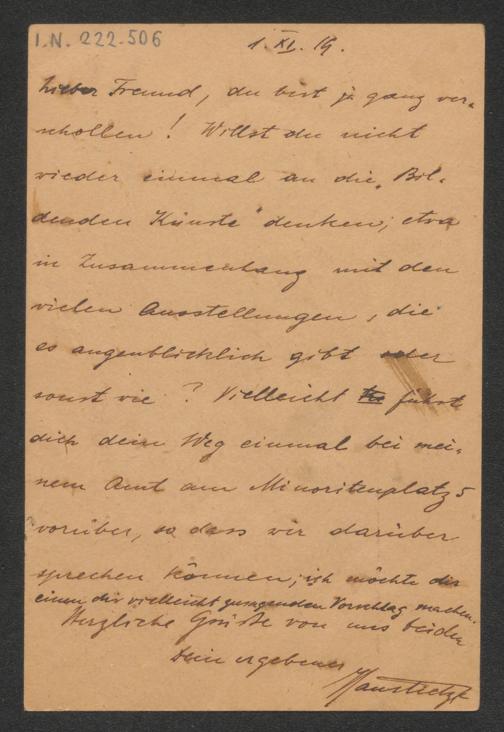 I.N. 222.506
1. XI. 19.
Lieber Freund, du bist ja ganz ver-
schollen! Willst du nicht
wieder einmal an die "Bil-
denden Künste" denken, etwa
in Zusammenhang mit den
vielen Ausstellungen, die
es augenblicklich gibt oder
sonst wie? Vielleicht führt
dich dein Weg einmal bei mei-
nem Amt am Minoritenplatz 5
vorüber, so dass wir darüber
sprechen können; ich möchte dir
einen dir vielleicht zusagenden Vorschlag machen.
Herzliche Grüße von uns beiden
Dein ergebener